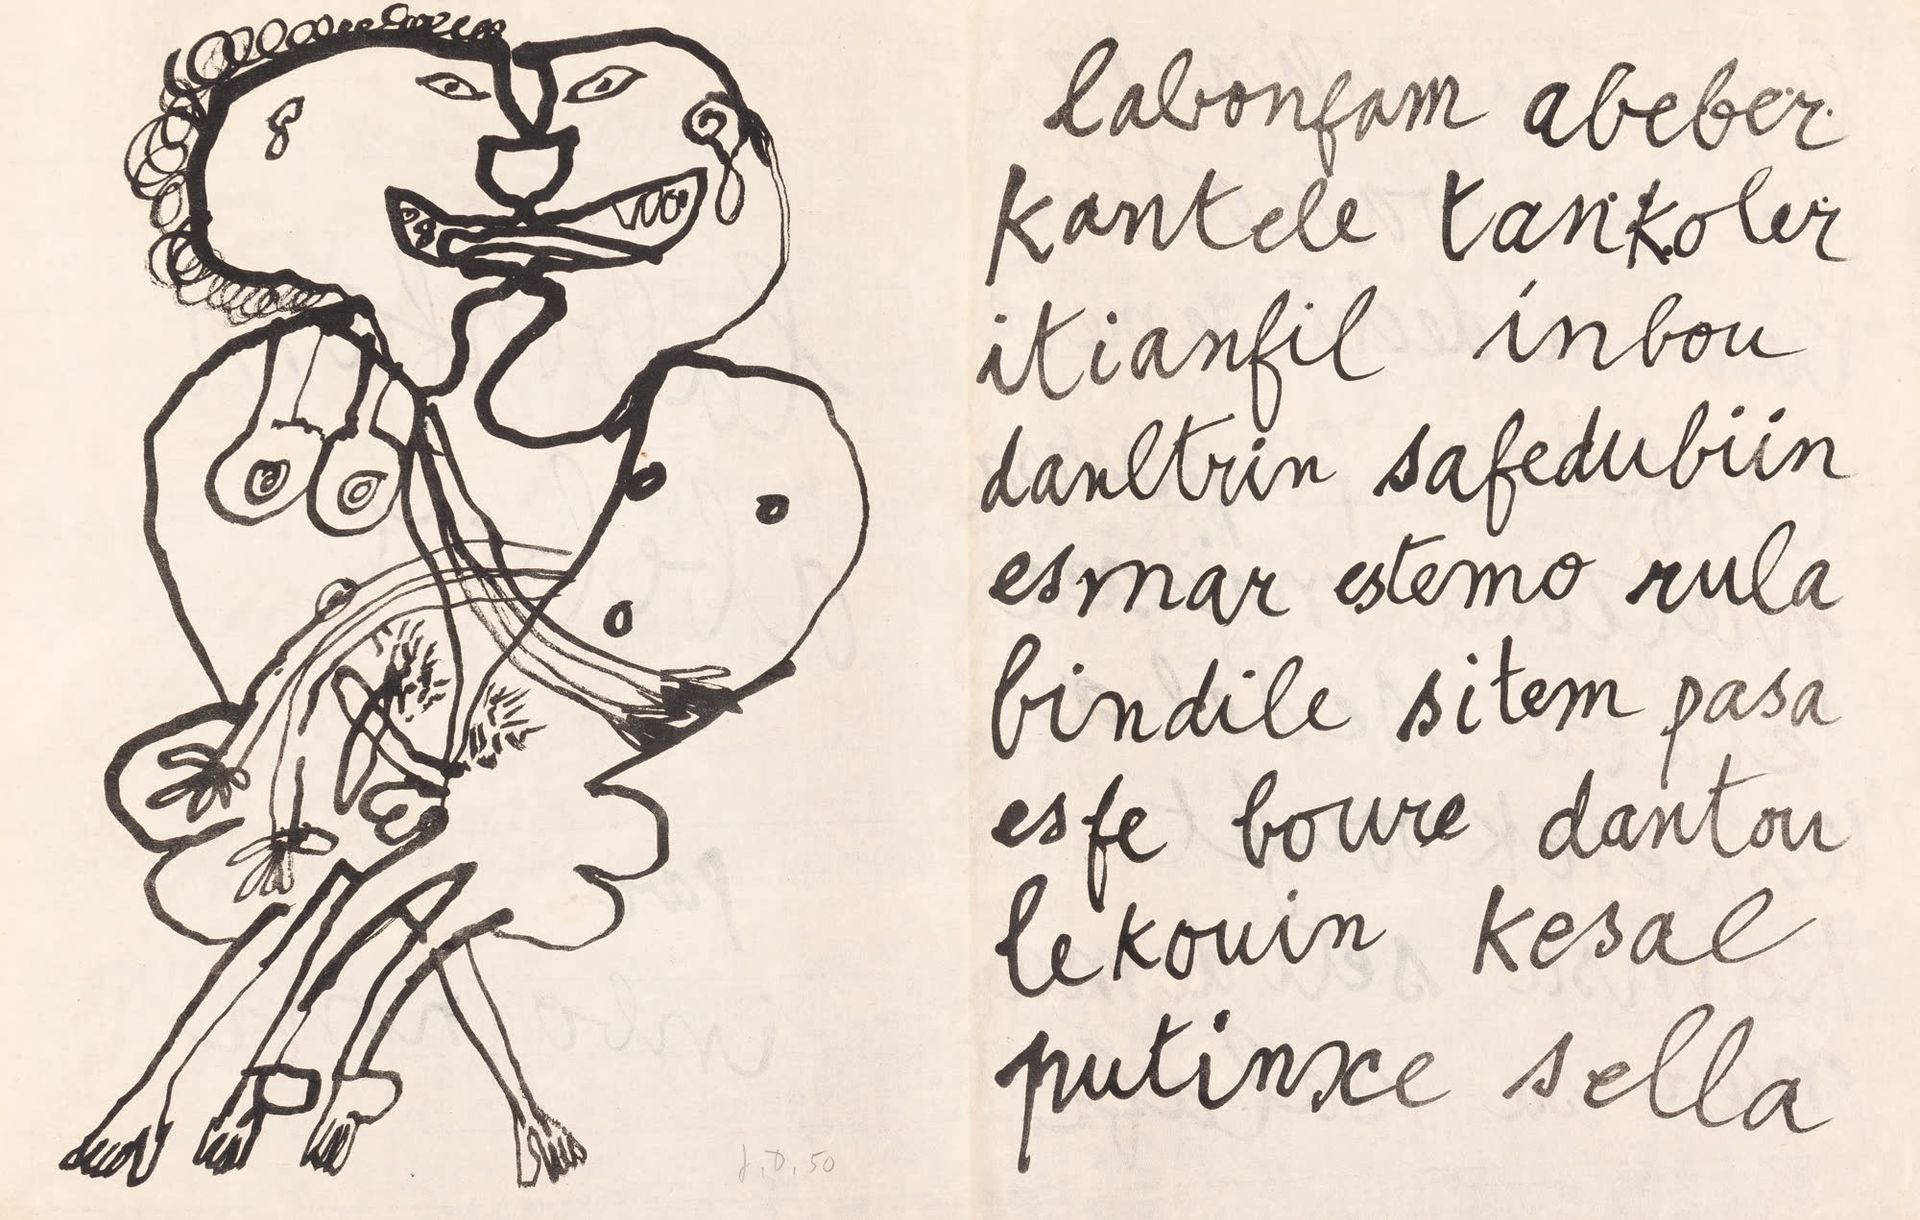 labonfam abeber
kantele tankoler
itianfil inbou
danltrin safedubiin
esmar estemo rula
bindile sitem pasa
esfe boure dantou
lekouin kesae
putinxe sella
J.D. 50